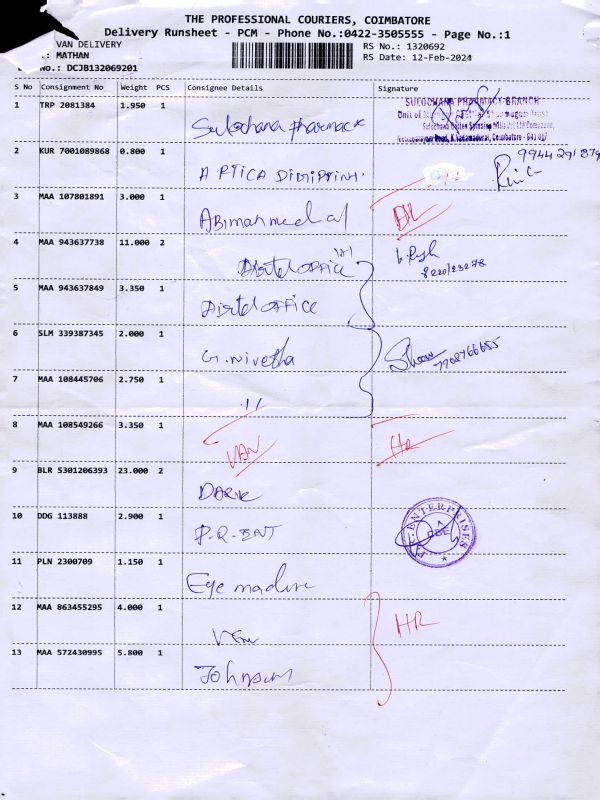 THE PROFESSIONAL COURIERS, COIMBATORE
Delivery Runsheet - PCM - Phone No.:0422-3505555 - Page No.:1
VAN DELIVERY
RS No.: 1320692
.: MATHAN
RS Date: 12-Feb-2024
No.: DCJB132069201
S No Consignment No Weight PCS Consignee Details Signature
1 TRP 2081384 1.950 1 Sulochana Pharmacy
SULOCHANA PHARMACY BRANCH
Unit of
Sulochana Cotton Spinning Mills Pvt Ltd
Coimbatore - 641 017
2 KUR 7001089868 0.800 1
3 MAA 107801891 3.000 1 Abimanmedal
4 MAA 943637738 11.000 2 Airtel OFFICE
5 MAA 943637849 3.350 1 Airtel OFFICE
6 SLM 339387345 2.000 1 G. nivetha
7708766655
7 MAA 108445706 2.750 1 ,,
8 MAA 108549266 3.350 1 VAN HR
9 BLR 5301206393 23.000 2
10 DDG 113888 2.900 1 P.R. ENT
ENTERPRISES
CBE
11 PLN 2300709 1.150 1 Eye
12 MAA 863455295 4.000 1 HR
13 MAA 572430995 5.800 1 Johnson